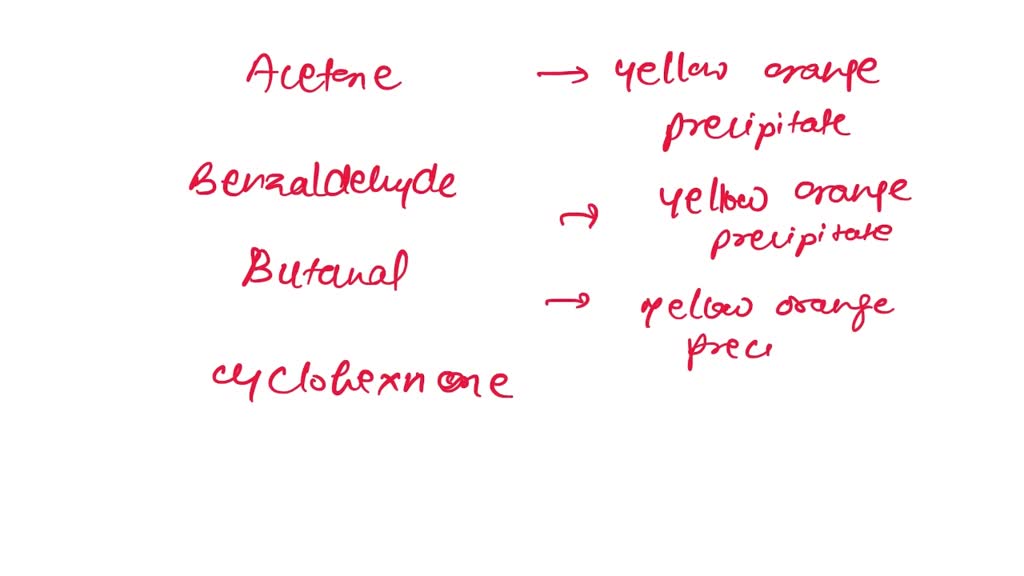 Acetone → yellow orange
precipitate
Benzaldehyde → yellow orange
precipitate
Butanal → yellow orange
preci
cyclohexnone